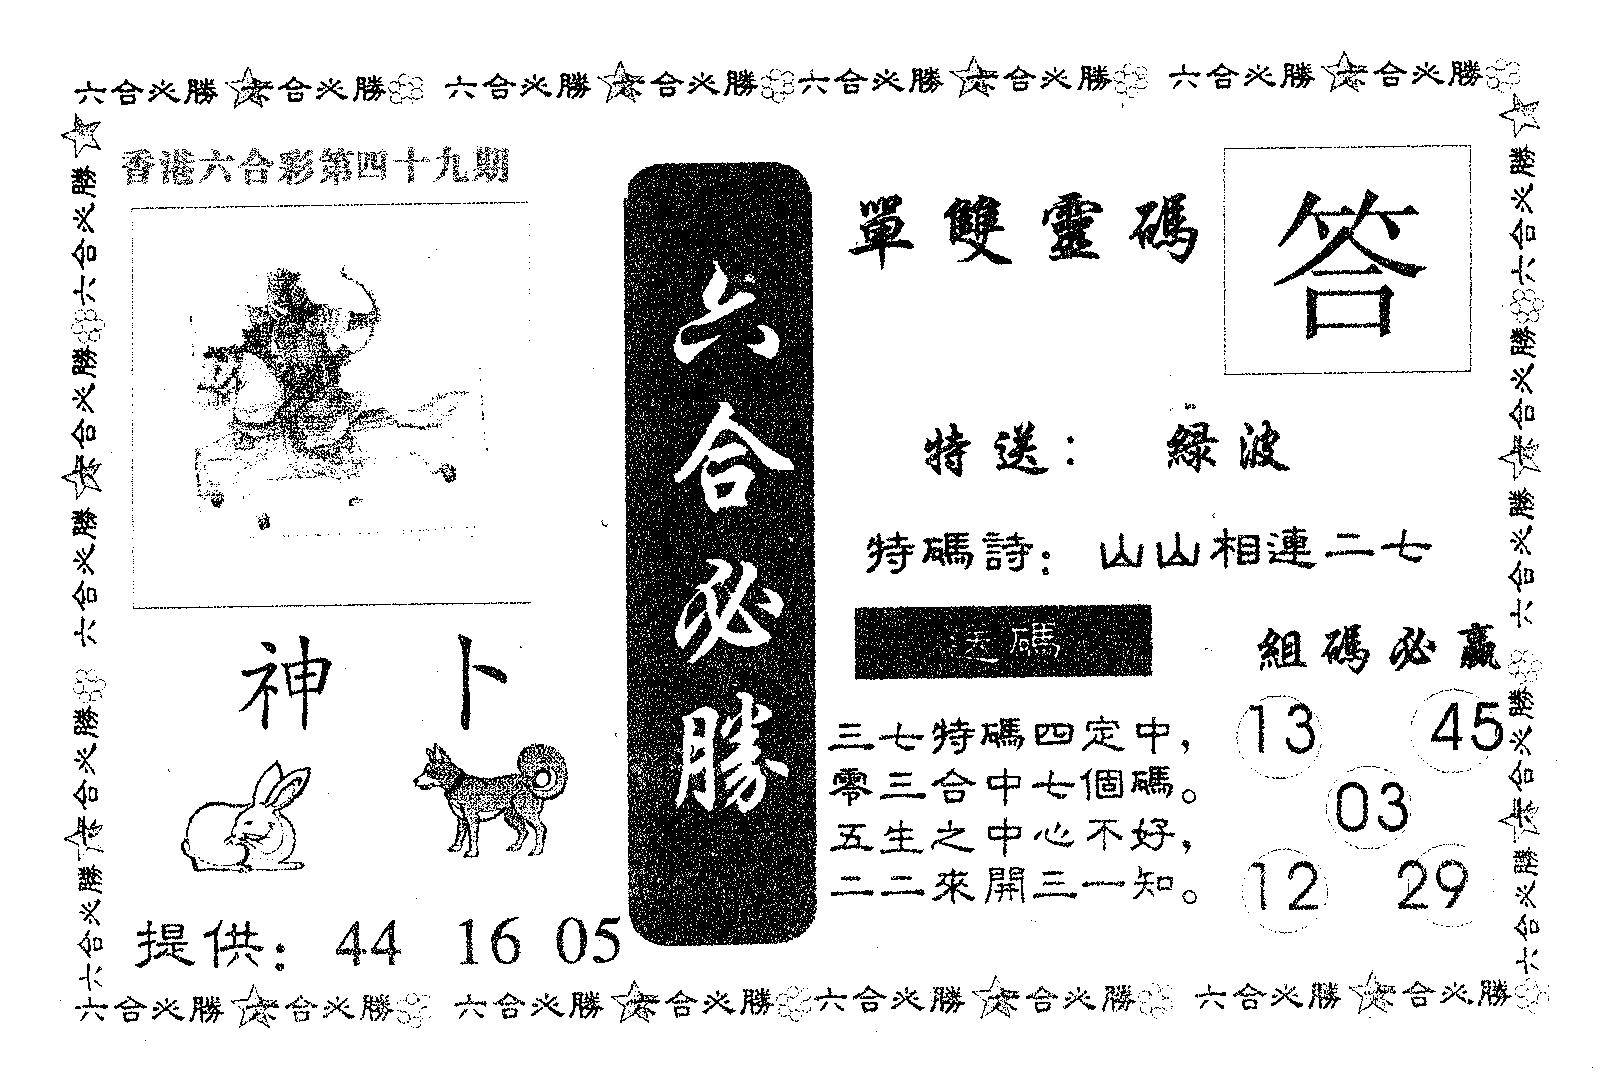 六合必勝 六合必勝 六合必勝 六合必勝 六合必勝 六合必勝 六合必勝 六合必勝
六合必勝 六合必勝 六合必勝 六合必勝 六合必勝
香港六合彩第四十九期
神 卜
提供： 44 16 05
六合必勝
單雙靈碼
答
特送： 緑波
特碼詩：山山相連二七
送碼
三七特碼四定中，
零三合中七個碼。
五生之中心不好，
二二來開三一知。
組碼必贏
13 45
03
12 29
六合必勝 六合必勝 六合必勝 六合必勝 六合必勝
六合必勝 六合必勝 六合必勝 六合必勝 六合必勝 六合必勝 六合必勝 六合必勝